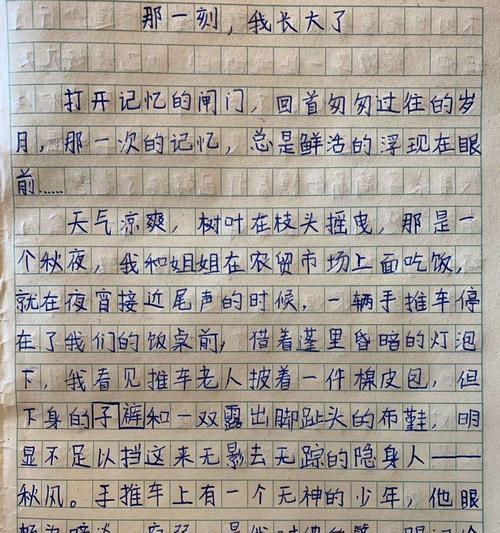 那一刻，我长大了
打开记忆的闸门，回首匆匆过往的岁
月，那一次的记忆，总是鲜活的浮现在眼
前……
天气凉爽，树叶在枝头摇曳，那是一
个秋夜，我和姐姐在农贸市场上面吃饭，
就在夜宵接近尾声的时候，一辆手推车停
在了我们的饭桌前，借着蓬里昏暗的灯泡
下，我看见推车老人披着一件橡皮包，但
下身的子裤和一双露出脚趾头的布鞋，明
显不足以挡这来无影去无踪的隐身人——
秋风。手推车上有一个无神的少年，他眼